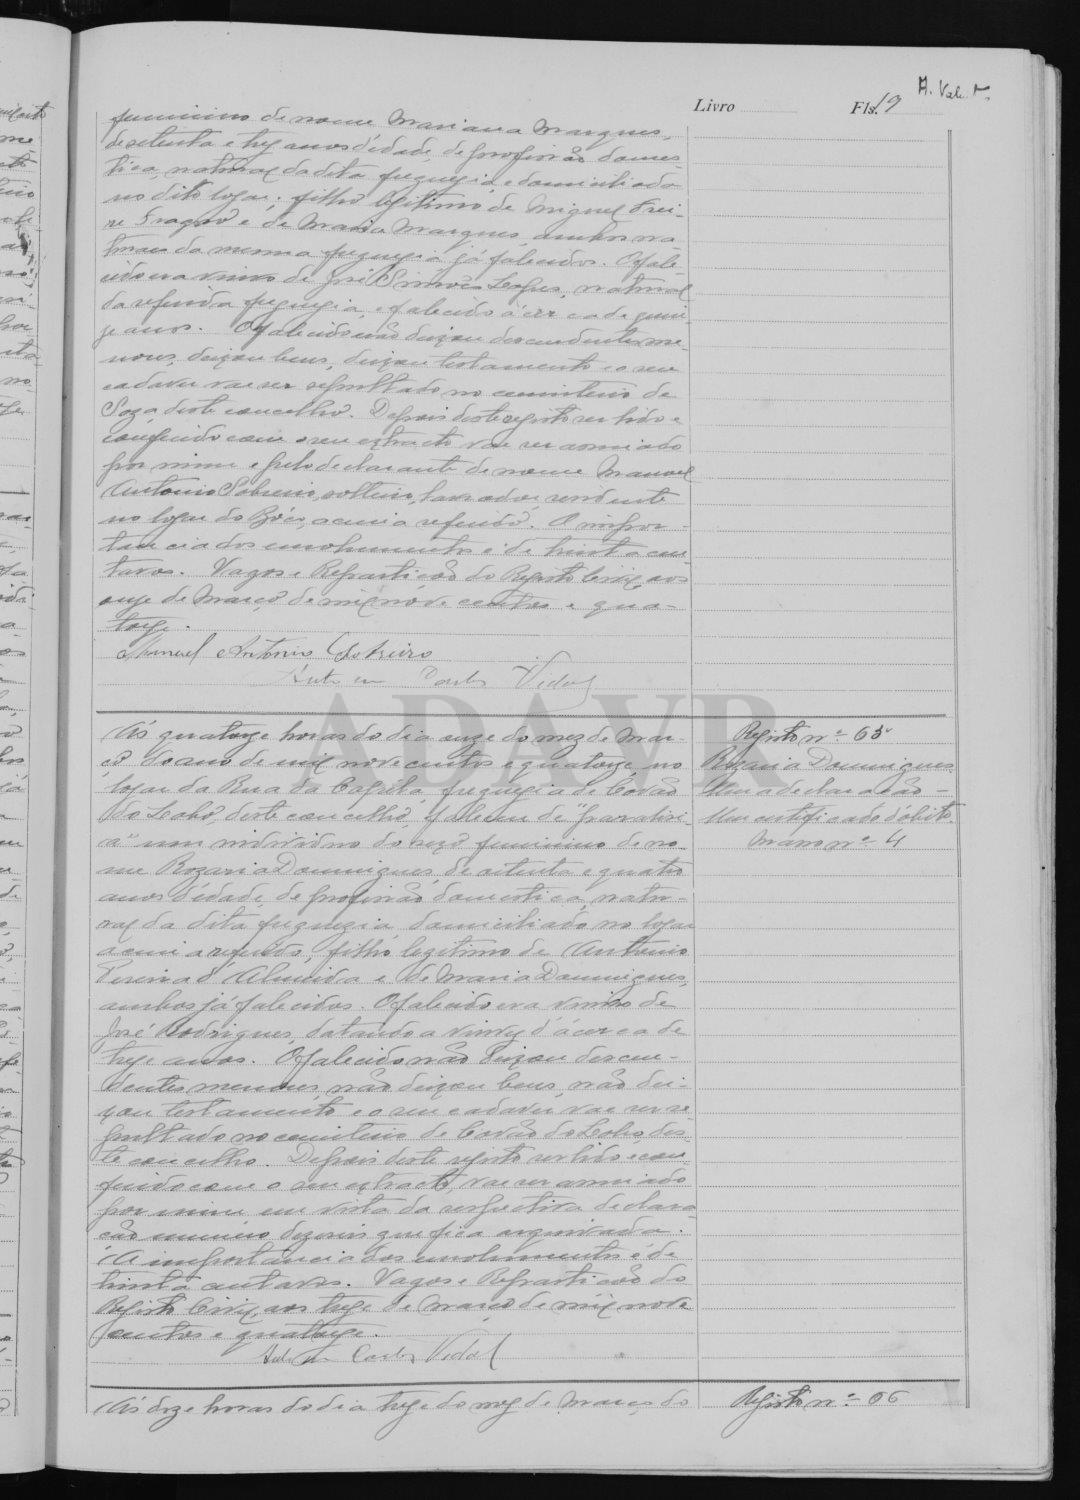 A. Valent.
Livro
Fls. 19
feminino de nome Mariana Marques,
de setenta e trez anos d'idade, de profissão domes-
tica, natural da dita freguezia, e domiciliado
no dito logar, filho legitimo de Miguel Frei-
re e de Maria Marques, ambos na-
turaes da mesma freguezia já falecidos. O fale-
cido era viuvo de José Simões Lopes, natural
da referida freguezia, e falecido á cerca de quin-
ze anos. O falecido não deixou descendentes me-
nores, deixou bens, deixou testamento e o seu
cadaver vae ser sepultado no cemiterio de
Soza deste concelho. Depois deste registo ser lido e
conferido com o seu extracto vae ser assinado
por mim e pelo declarante de nome Manuel
Antonio Sobreiro, solteiro, lavrador, residente
no logar do Boco, acima referido. A impor-
tancia dos emolumentos é de trinta cen-
tavos. Vagos e Repartição do Registo Civil, aos
onze de Março de mil nove centos e qua-
torze.
Manuel Antonio Sobreiro
Carlos Vidal
ADAVR
Ás quatorze horas do dia onze do mez de Mar-
ço do ano de mil nove centos e quatorze, no
logar da Rua da Capéla, freguezia de Covão
do Lobo, deste concelho, faleceu de "paralisi-
a" um individuo do sexo feminino de no-
me Rozaria Domingues, de oitenta e quatro
anos d'idade, de profissão domestica, natu-
ral da dita freguezia, domiciliado no logar
acima referido, filho legitimo de Antonio
Pereira d'Almeida e de Maria Domingues,
ambos já falecidos. O falecido era viuvo de
José Rodrigues, datando a viuvez d'ácerca de
treze anos. O falecido não deixou descen-
dentes menores, não deixou bens, não dei-
xou testamento e o seu cadaver vae ser se-
pultado no cemiterio de Covão do Lobo, des-
te concelho. Depois deste registo ser lido e con-
ferido com o seu extracto, vae ser assinado
por mim em vista da respectiva declara-
ção numero dezoris que fica arquivada.
A importancia dos emolumentos é de
trinta centavos. Vagos e Repartição do
Registo Civil, aos treze de Março de mil nove
centos e quatorze.
Carlos Vidal
Registo nº 65
Rozaria Domingues
Uma declaração -
Um certificado d'obito.
Maço nº 4
Ás doze horas do dia treze do mez de Março do
Registo nº 66